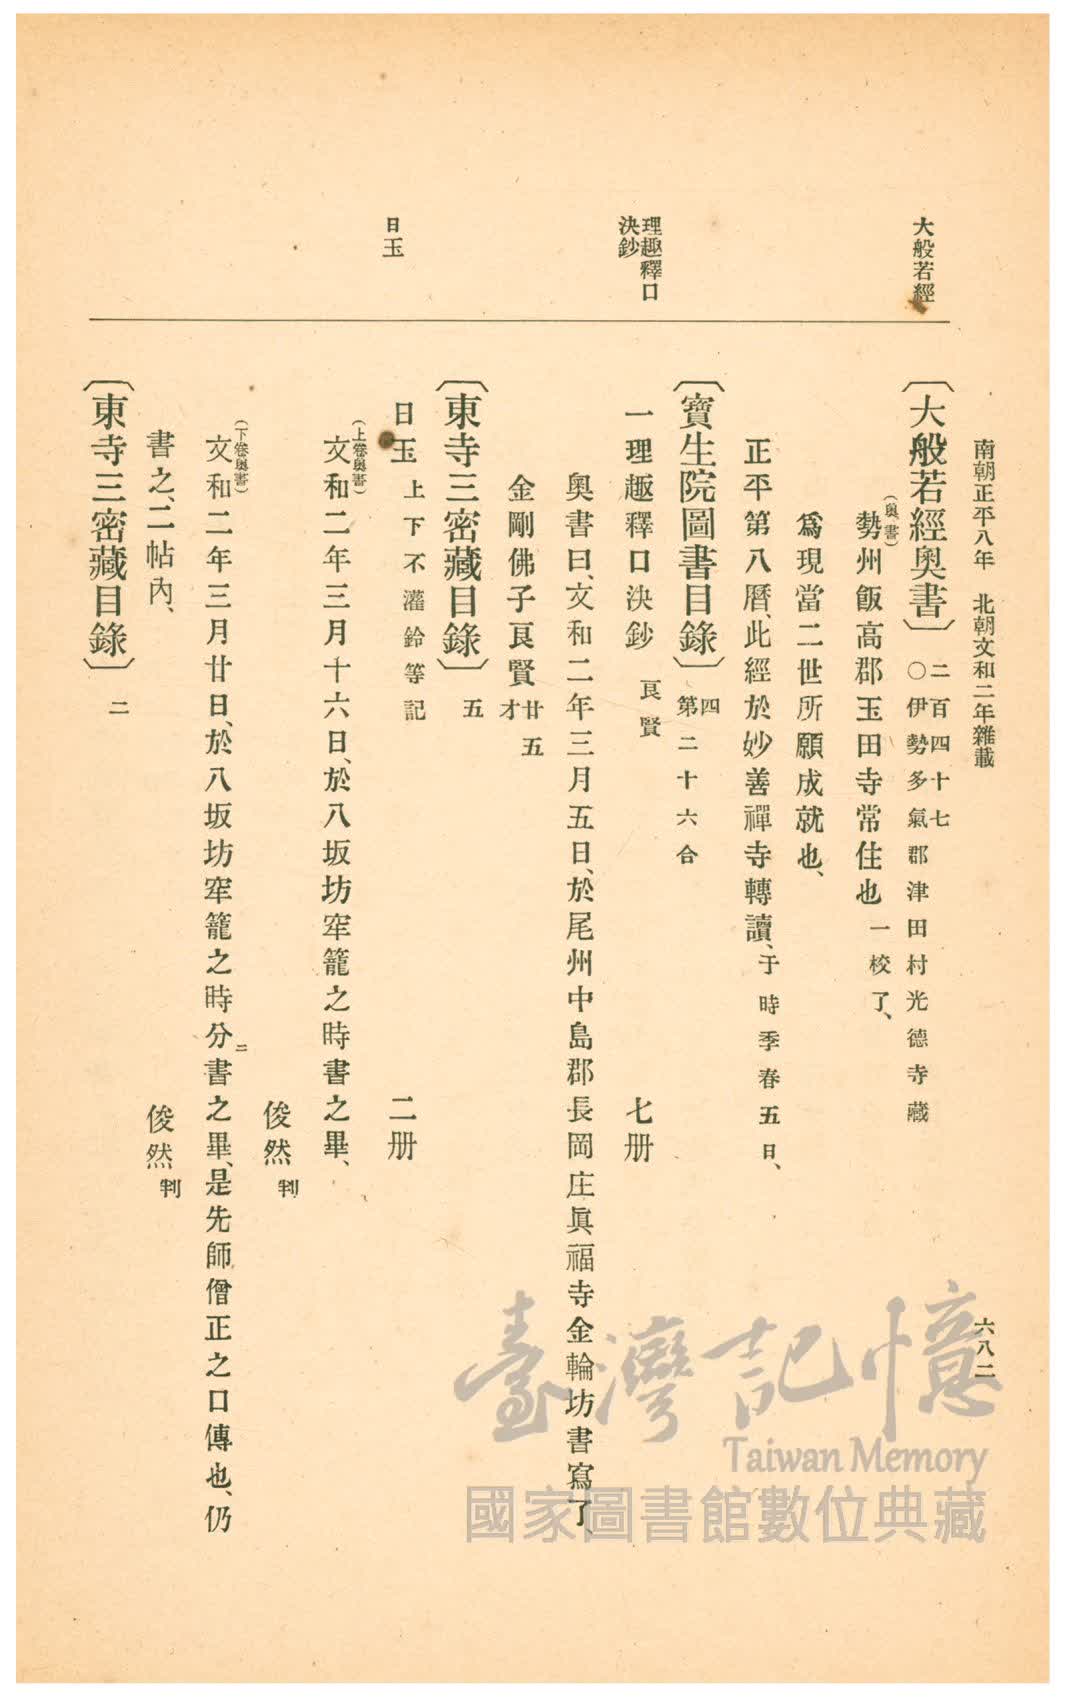 南朝正平八年　北朝文和二年雜載
六八二
大般若經
理趣釋口
決鈔
日玉
〔大般若經奧書〕二百四十七
○伊勢多氣郡津田村光德寺藏
(奧書)
勢州飯高郡玉田寺常住也一校了、
爲現當二世所願成就也、
正平第八曆、此經於妙善禪寺轉讀、于時季春五日、
〔寶生院圖書目錄〕四
第二十六合
一理趣釋口決鈔　良賢　七册
奧書曰、文和二年三月五日、於尾州中島郡長岡庄眞福寺金輪坊書寫了、
金剛佛子良賢廿五
才
〔東寺三密藏目錄〕五
日玉上下不灌鈴等記　二册
(上卷奧書)
文和二年三月十六日、於八坂坊窂籠之時書之畢、
俊然判
(下卷奧書)
文和二年三月廿日、於八坂坊窂籠之時分ニ書之畢、是先師僧正之口傳也、仍
書之、二帖內、
俊然判
〔東寺三密藏目錄〕二
臺灣記憶
Taiwan Memory
國家圖書館數位典藏